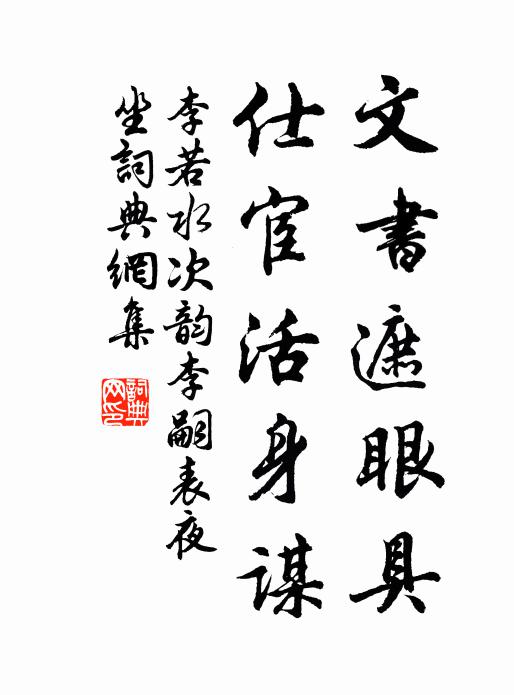 文書遮眼具
仕宦活身謀
李若水次韵李嗣表夜
坐詞典網集
詞典網印